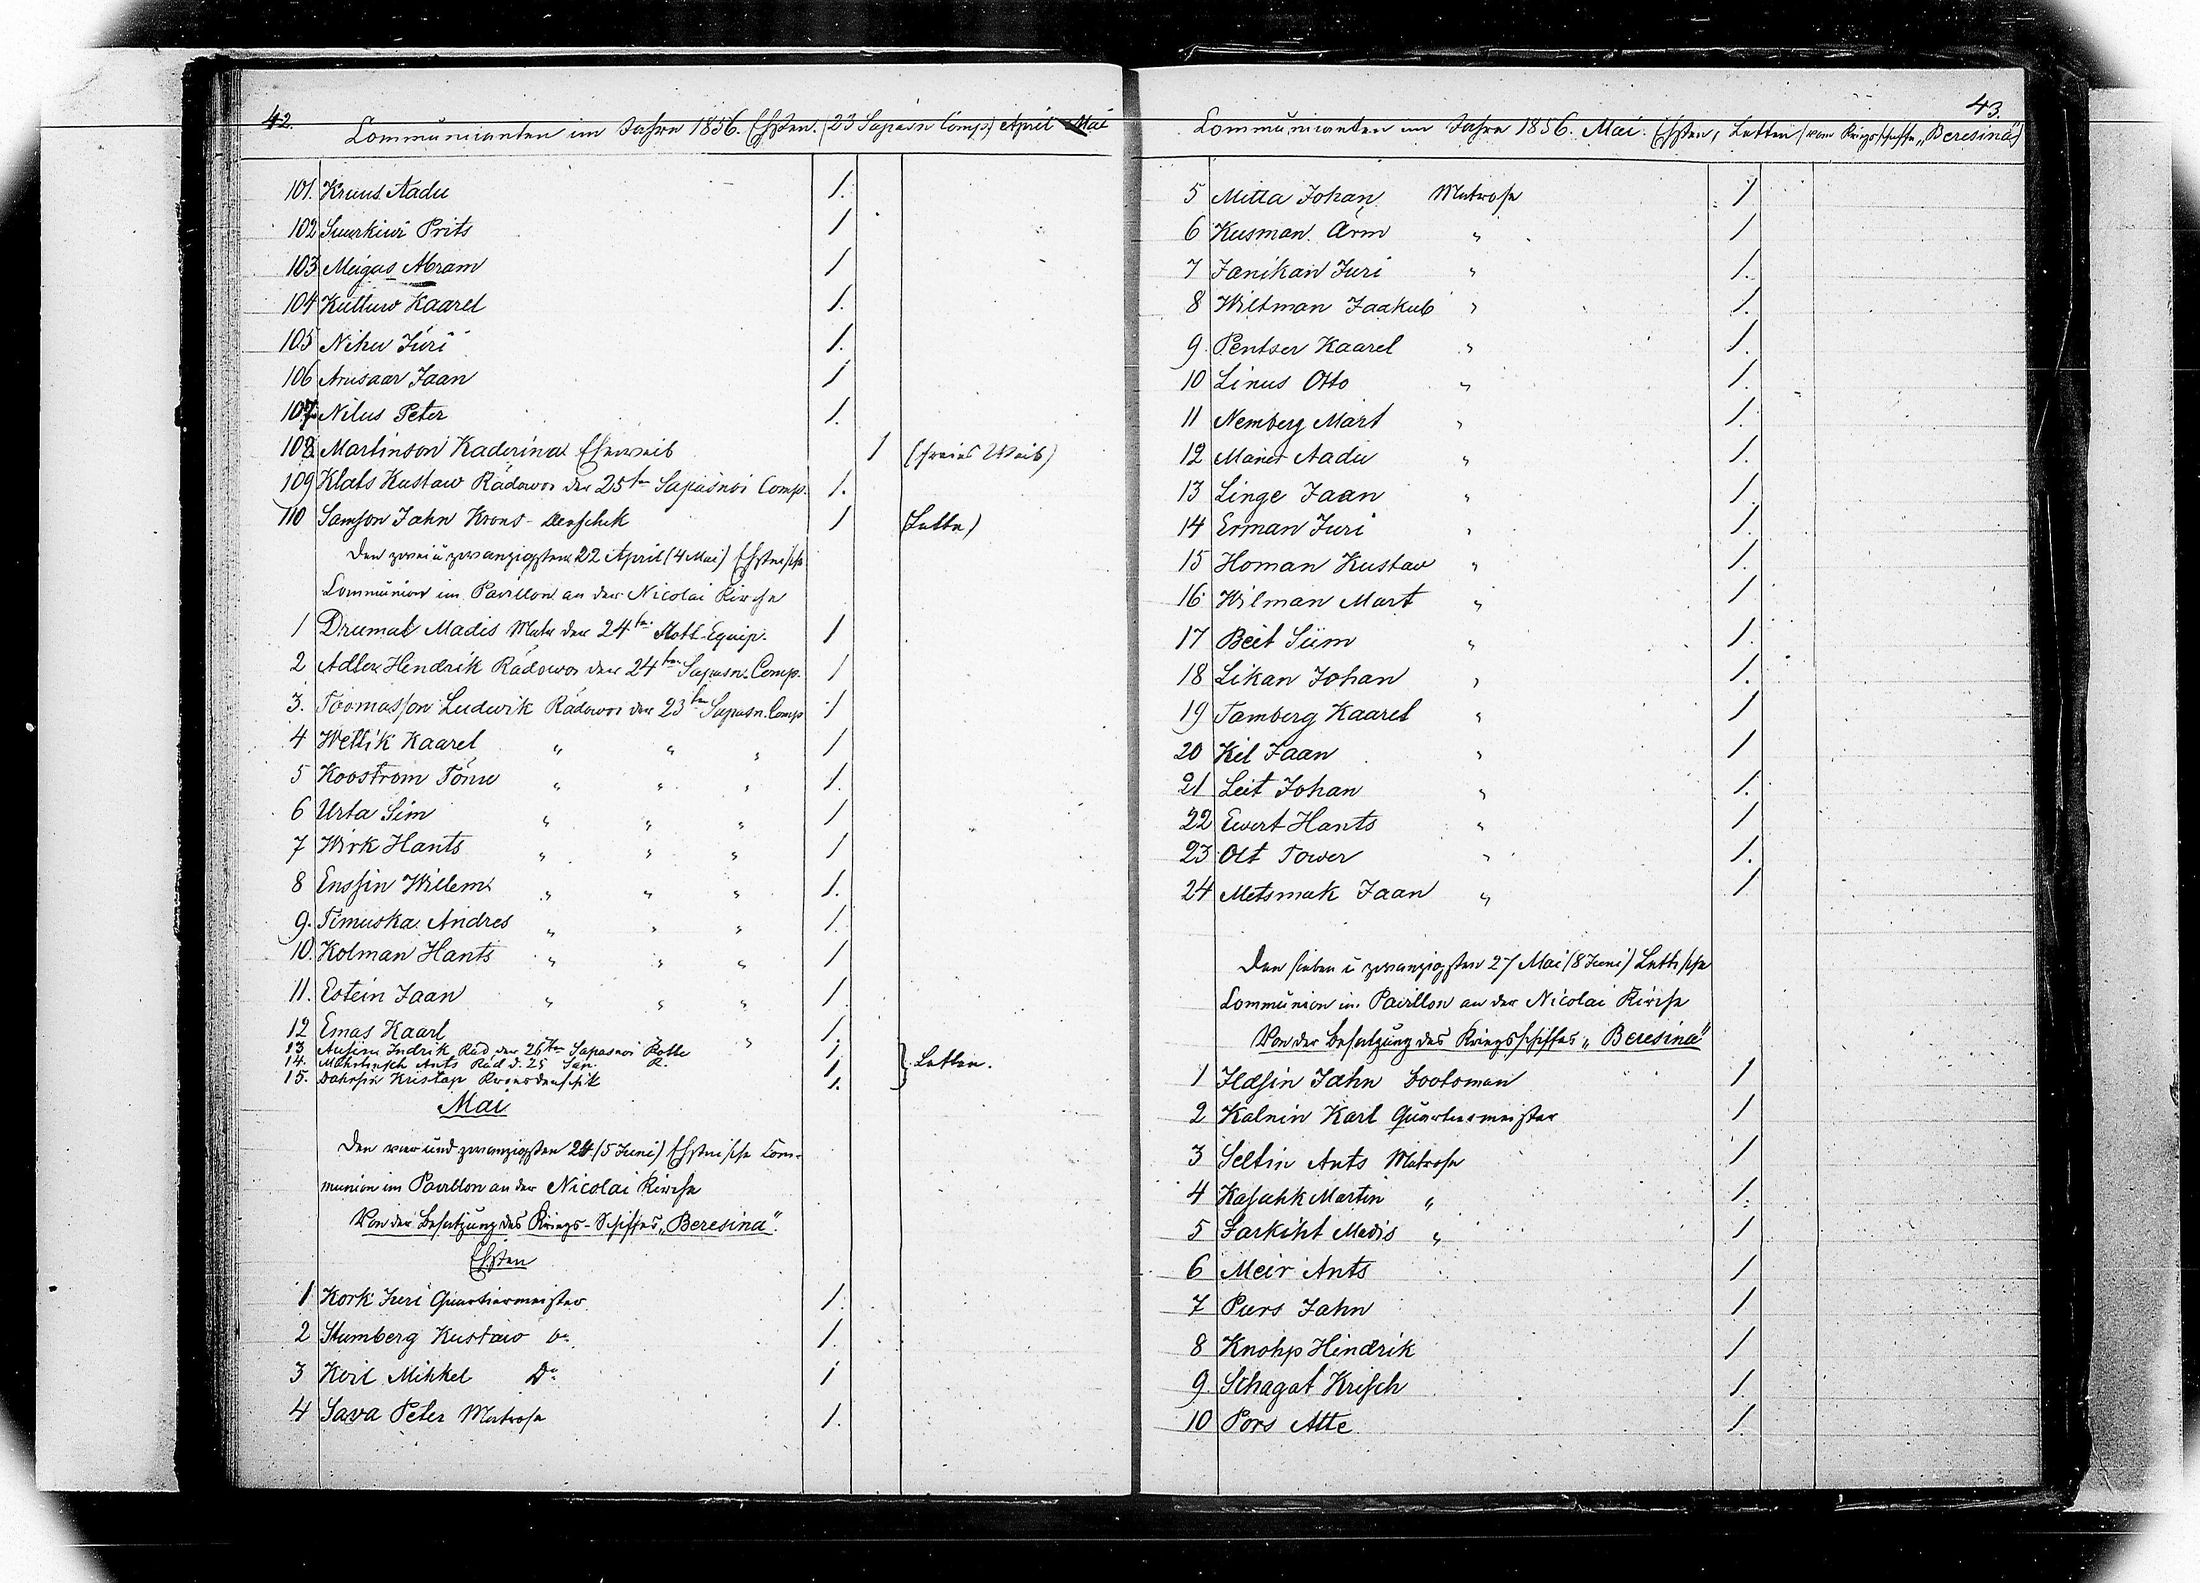 42.
Communicanten im Jahre 1856. Ehsten. (23 Sapasn Comp.) April Mai
101. Kruus Aadu 1.
102 Suurkiwi Prits 1
103 Meigas Abram 1
104 Kuttuw Kaarel 1.
105 Nihu Jüri 1.
106 Arusaar Jaan 1
107. Nilus Peter 1.
108 Martinson Kaderina Eheweib 1 (freies Weib)
109 Klats Kustaw Rädowoi der 25ten Sapasnoi Comp. 1.
110 Samson Jahn Krons-Denschik 1 (Lette)
Den zwei u zwanzigsten 22 April (4 Mai) Ehstnische
Communion im Pavillon an der Nicolai Kirche
1 Drumat Madis Matr der 24ten Flott-Equip. 1
2 Adler Hendrik Rädowoi der 24ten Sapasn. Comp. 1
3. Toomasson Ludwik Rädowoi der 23ten Sapasn. Comp 1
4 Wellik Kaarel " " " 1
5 Koostrom Tõnu " " " 1.
6 Urta Sim " " " 1
7 Wirk Hants " " " 1
8 Enssin Willem " " " 1.
9. Timuska Andres " " " 1.
10. Kolman Hants " " " 1
11. Estein Jaan " " " 1
12 Emas Kaarl " 1.
13 Ausing Indrik Räd der 26ten Sapasnoi Rotte 1.
14. Mahrtinsch Ants Räd d. 25 Sap. R. 1. } Letten.
15. Dahrsin Kristap Kronsdenschik 1.
Mai
Den vier und zwanzigsten 24 (5 Juni) Ehstnische Com-
munion im Pavillon an der Nicolai Kirche
Von der Besatzung des Kriegs-Schiffes „Beresina".
Ehsten
1 Kork Juri Quartiermeister 1.
2 Stumberg Kustaw Do. 1.
3 Keil Mihkel Do 1
4 Sava Peter Matrose 1.
43.
Communicanten im Jahre 1856. Mai. Ehsten, Letten (vom Kriegsschiffe „Beresina")
5 Mitta Johan Matrose 1
6 Kusman Arm " 1
7 Janikan Juri " 1.
8 Wiltman Jaakub " 1.
9. Pentser Kaarel " 1.
10 Linus Otto " 1.
11 Nemberg Mart " 1.
12 Maner Aadu " 1.
13 Linge Jaan " 1.
14 Erman Juri " 1.
15 Homan Kustaw " 1.
16 Wilman Mart " 1
17 Beit Siim " 1.
18 Likan Johan " 1.
19 Tamberg Kaarel " 1
20 Kil Jaan " 1
21 Leit Johan " 1.
22 Ewert Hants " 1
23 Olt Tower " 1.
24 Metsmak Jaan " 1
Den sieben u zwanzigsten 27 Mai (8 Juni) Lettische
Communion im Pavillon an der Nicolai Kirche
Von der Besatzung des Kriegsschiffes „Beresina"
1 Ilasin Jahn Bootsman 1
2 Kalnin Karl Quartiermeister 1
3 Seltin Ants Matrose 1
4 Kasahk Martin " 1.
5 Sarkiht Madis " 1
6 Meir Ants 1
7 Purs Jahn 1
8 Knohp Hindrik 1
9. Schagat Krisch 1.
10 Pors Atte 1.